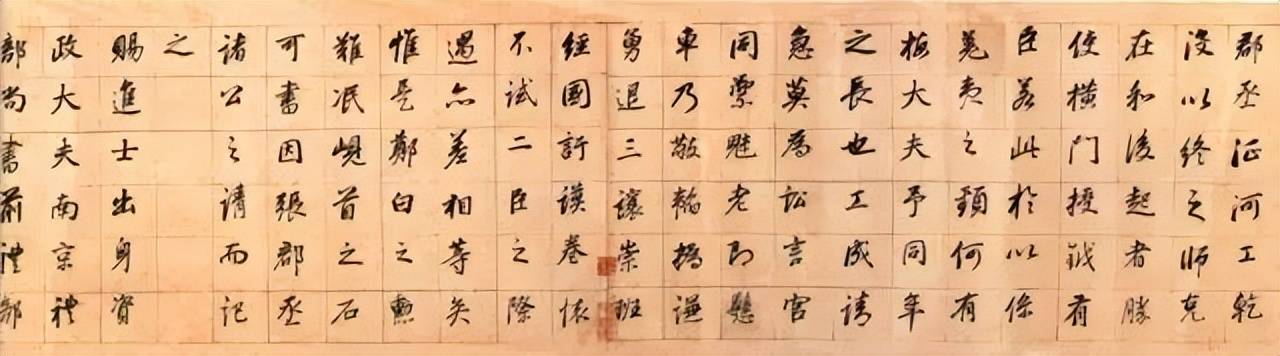 郡丞征河工乾
沒以終之師克
在和後起者勝
使橫門授鉞有
臣若此於以係
羌夷之頸何有
梅大夫予同年
之長也工成請
急莫為訟言官
同禦魅老即懸
車乃撝謙
勇退三讓崇班
經國訏謨卷懷
不試二臣之際
遇亦差相等矣
惟是鄭白之勳
難泯峴首之石
可書因張郡丞
諸公之請而記
之
賜進士出身資
政大夫南京禮
部尚書前禮部